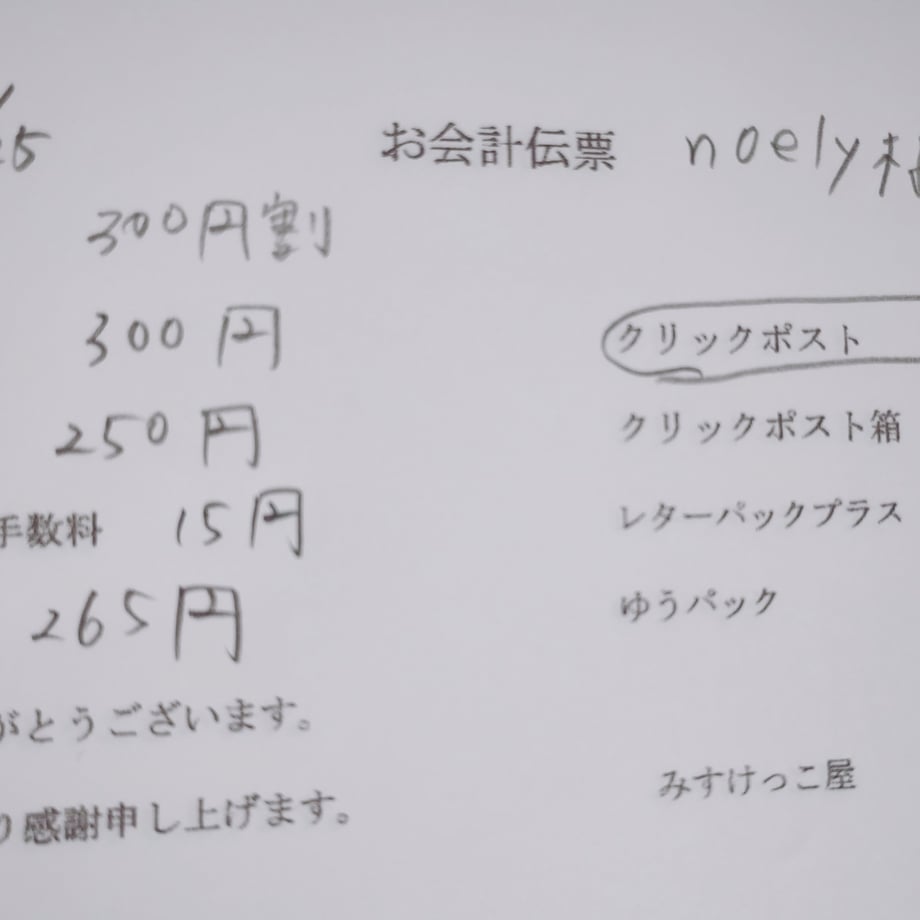 25
お会計伝票 noely様
300円割
300円
クリックポスト
250円
クリックポスト箱
手数料 15円
レターパックプラス
265円
ゆうパック
がとうございます。
みすけっこ屋
り感謝申し上げます。